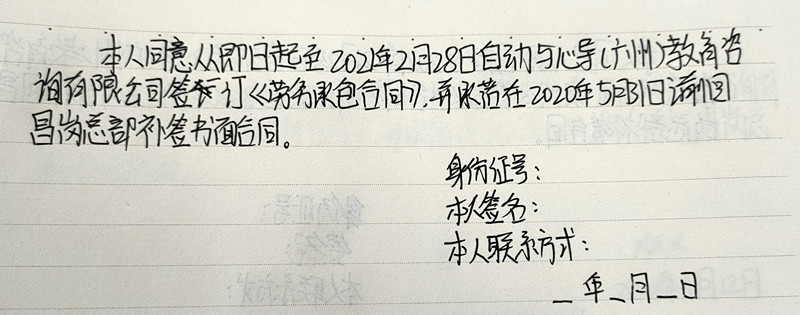 本人同意从即日起至2021年2月28日自动与心导(广州)教育咨
询有限公司签订《劳务承包合同》,并承诺在2020年5月31日前回
昌岗总部补签书面合同。
身份证号:
本人签名:
本人联系方式:
_年_月_日